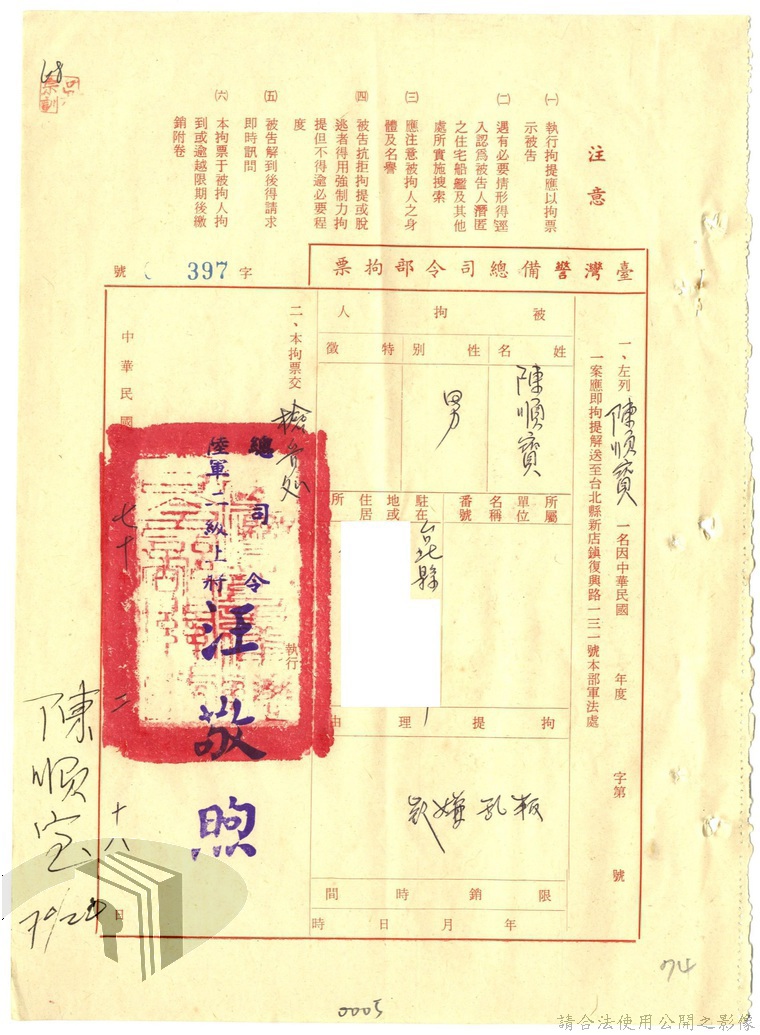 注意
㈠ 執行拘提應以拘票
示被告
㈡ 遇有必要情形得逕
入認爲被告人潛匿
之住宅船艦及其他
處所實施搜索
㈢ 應注意被拘人之身
體及名譽
㈣ 被告抗拒拘提或脫
逃者得用強制力拘
提但不得逾必要程
度
㈤ 被告解到後得請求
即時訊問
㈥ 本拘票于被拘人拘
到或逾越限期後繳
銷附卷
臺灣警備總司令部拘票
字 397 號
一、左列 陳順寶 一名因中華民國 年度 字第 號
一案應即拘提解送至台北縣新店鎮復興路一三一號本部軍法處
被拘人
姓名
陳順寶
性別
男
特徵
所屬單位名稱番號
駐在地或住居所
台北縣
拘提理由
叛亂嫌疑
限銷時間
年月日時
二、本拘票交 檢察處 執行
總司令
陸軍二級上將 汪敬煦
中華民國 七十 二 十八 日
陳順宝
0005
074
請合法使用公開之影像